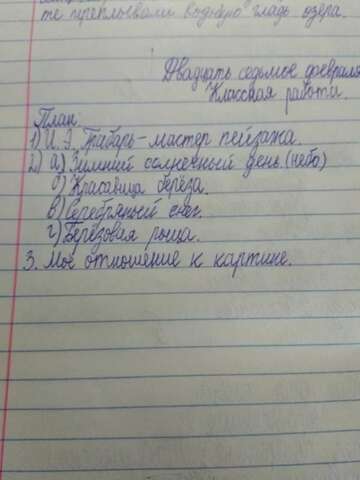 те переплывали водную гладь озера.
Двадцать седьмое февраля
Классная работа.
План.
1) И. Э. Грабарь - мастер пейзажа.
2) а) Зимний солнечный день (небо)
б) Красавица берёза.
в) Серебряный снег.
г) Берёзовая роща.
3. Моё отношение к картине.